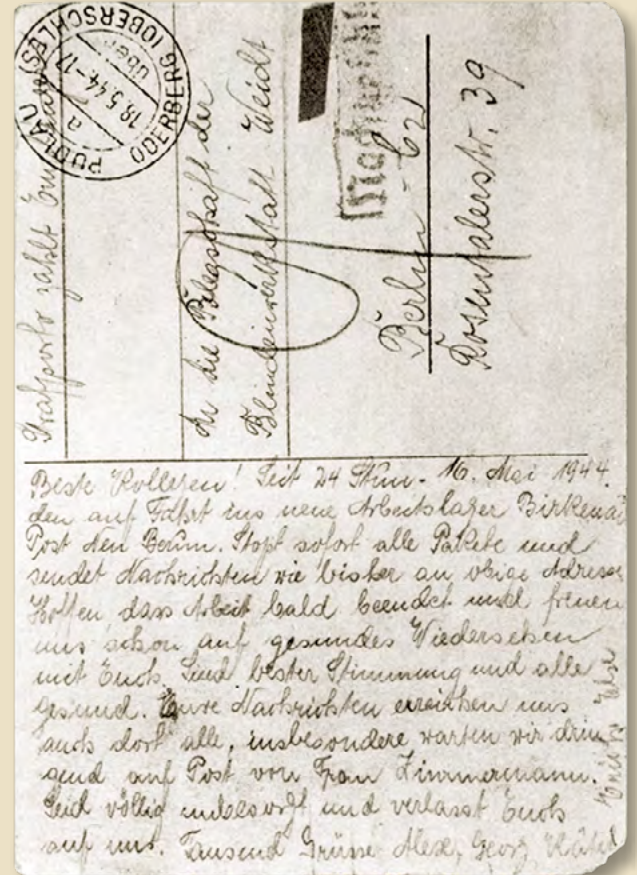 PUDLAU ODERBERG (OBERSCHLES)
über
a
18.5.44.-17
Strafporto zahlt
An die Belegschaft der
Blindenwerkstatt Weidt
Berlin - C2
Rosenthalerstr. 39
Beste Kolleren! Seit 24 Stun- 16. Mai 1944.
den auf Fahrt ins neue Arbeitslager Birkenau
Post Neu Berun. Stopt sofort alle Pakete und
sendet Nachrichten wie bisher an obige Adresse
Hoffen, dass Arbeit bald beendet und freuen
uns schon auf gesundes Wiedersehen
mit Euch. Sind bester Stimmung und alle
gesund. Eure Nachrichten erreichen uns
auch dort alle, insbesondere warten wir drin
gend auf Post von Frau Zimmermann.
Seid völlig unbesorgt und verlasst Euch
auf uns. Tausend Grüsse Georg